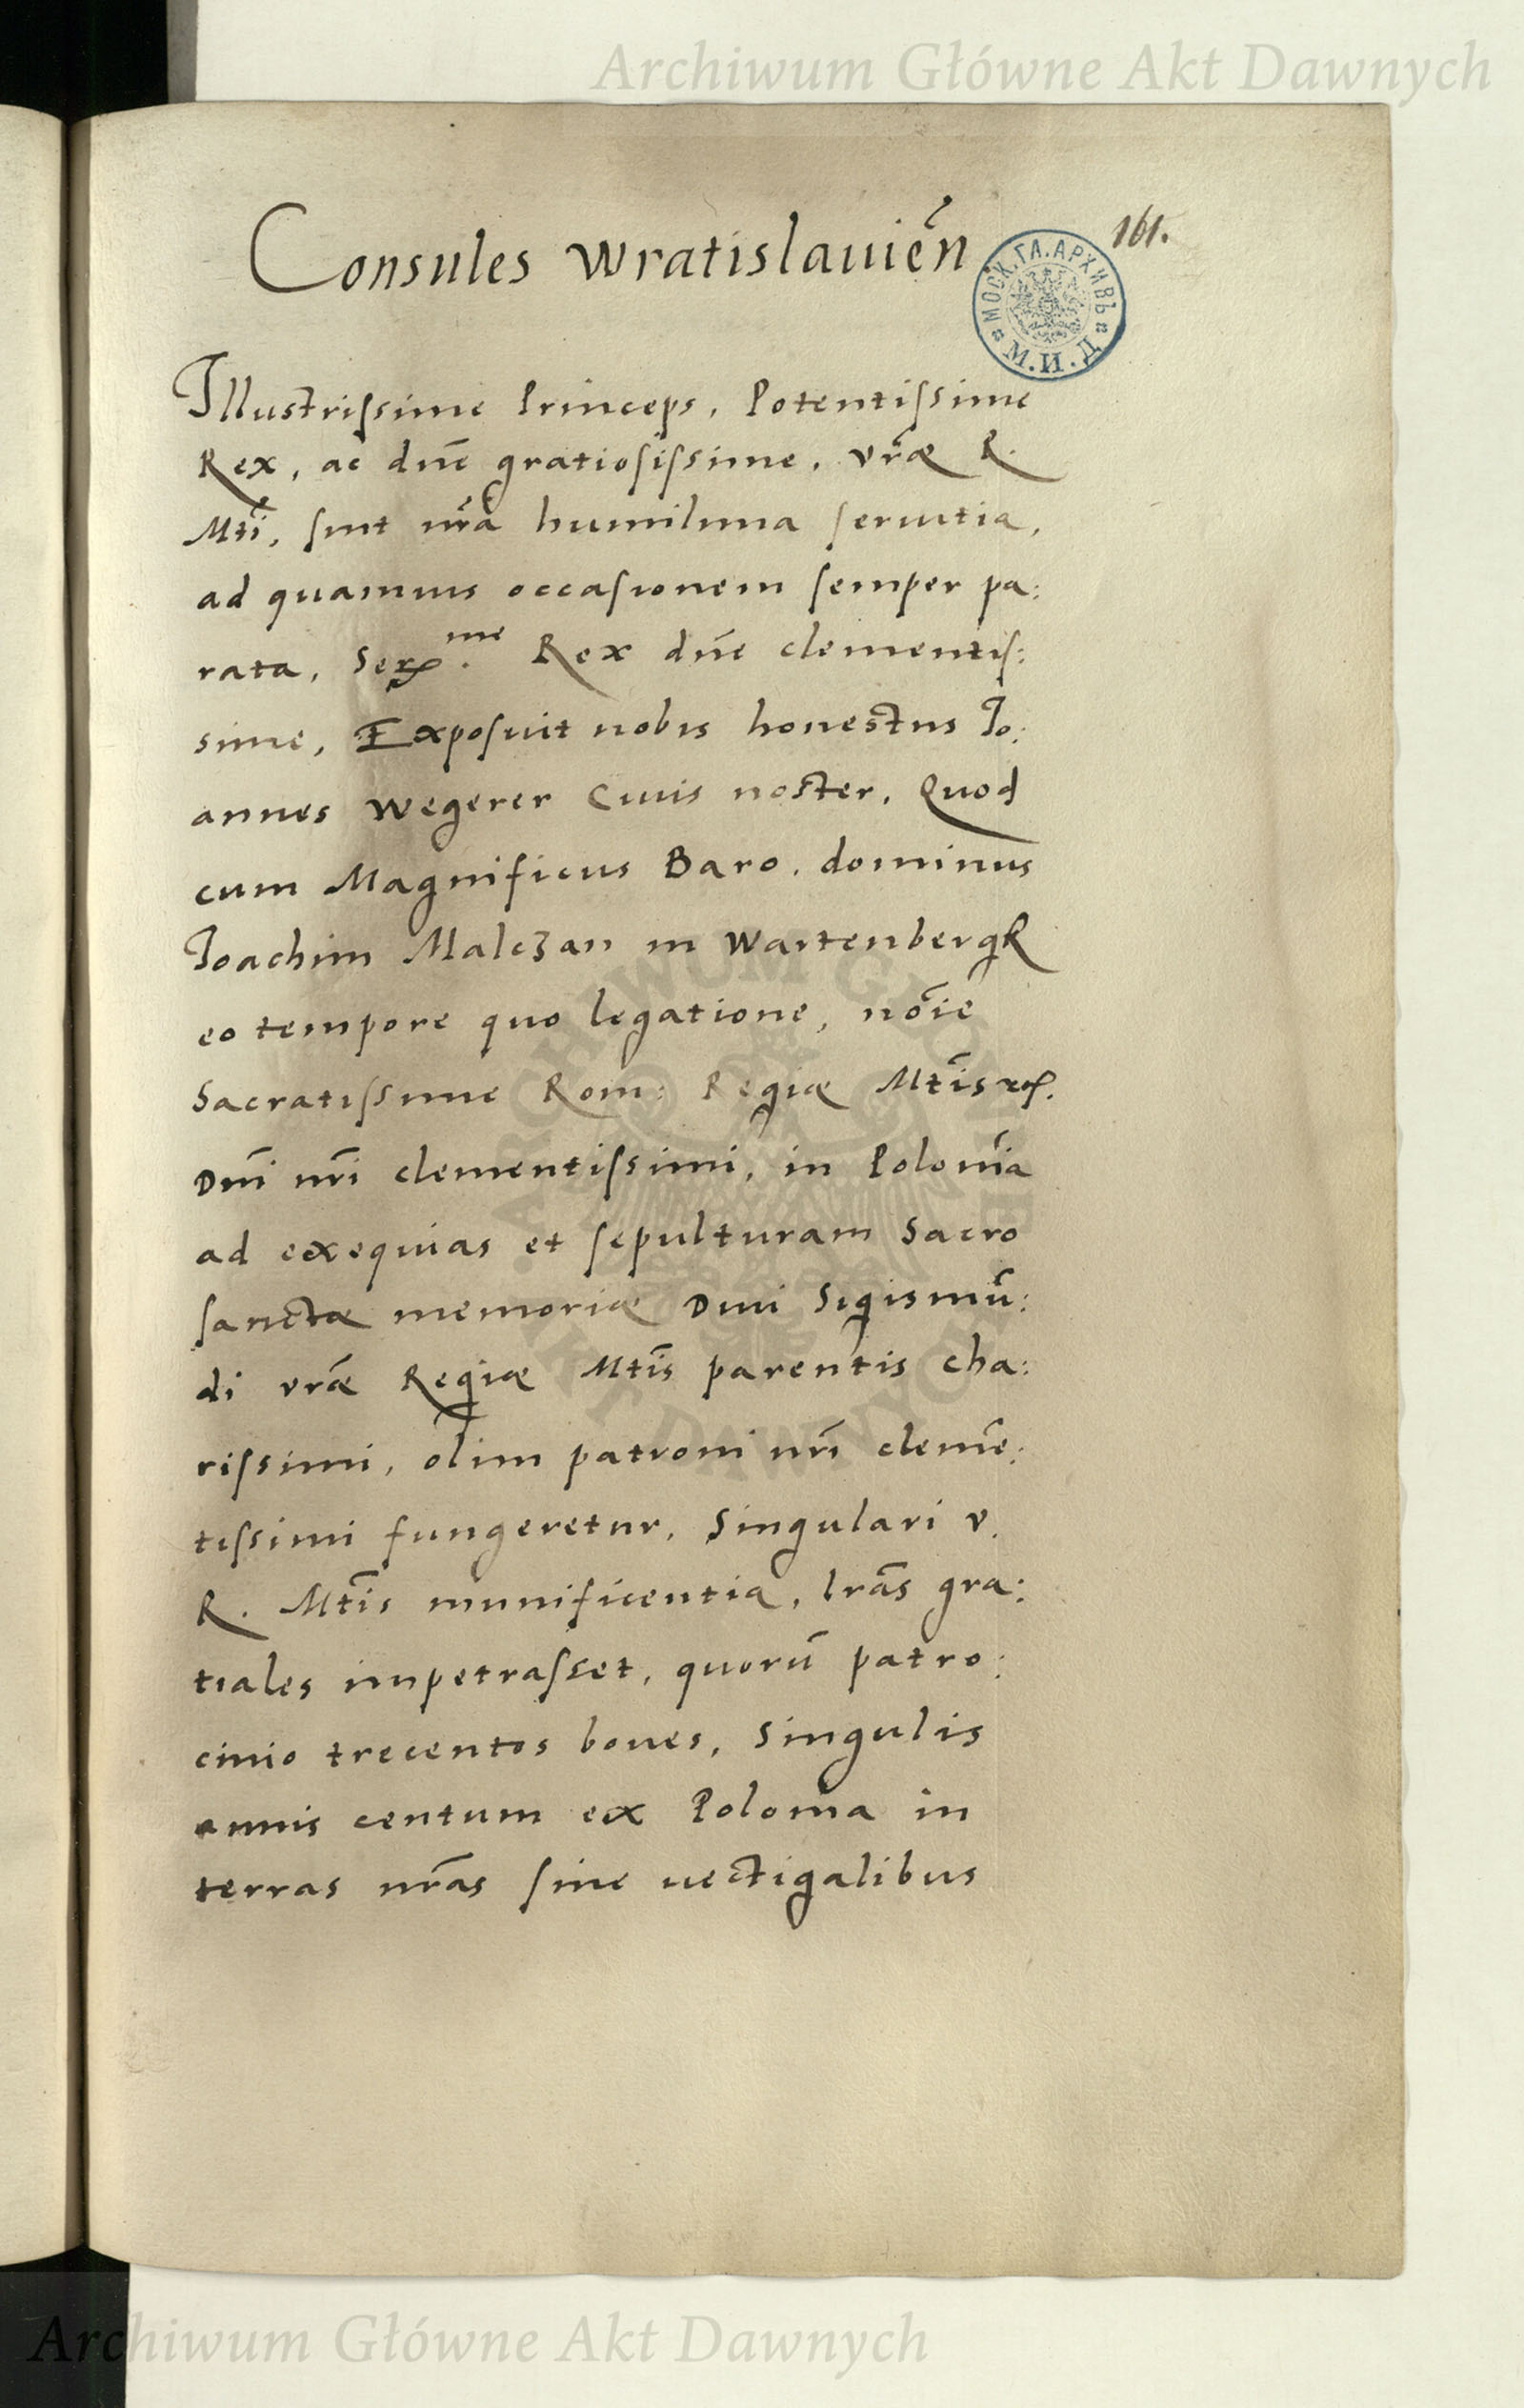 Archiwum Główne Akt Dawnych
161.
Consules Wratislauień
МОСК.ГЛ.АРХИВЪ
М.И.Д
Illustrissime Princeps, Potentissime
Rex, ac dñe gratiosissime, vr̃æ R.
Mti̅, sint nr̃a humilima seruitia,
ad quamuis occasionem semper pa:
rata, Ser. me Rex dñe clementis:
sime, Exposuit nobis honestus Jo:
annes Wegerer Ciuis noster, Quod
cum Magnificus Baro, dominus
Joachim Malczan in Wartenbergk
eo tempore quo legatione, no̅ie
Sacratissime Rom: Regiæ Mti̅s
Dñi nr̃i clementissimi, in Polonia
ad exequias et sepulturam Sacro
sanctæ memoriæ Diui Sigismu̅:
di vr̃æ Regiæ Mti̅s parentis cha:
rissimi, olim patroni nr̃i cleme̅:
tissimi fungeretur, Singulari v.
R. Mti̅s munificentia, lr̃as gra:
tiales impetrasset, quoru̅ patro:
cinio trecentos boues, Singulis
annis centum ex Polonia in
terras nr̃as sine uectigalibus
ARCHIWUM GŁÓWNE AKT DAWNYCH
Archiwum Główne Akt Dawnych